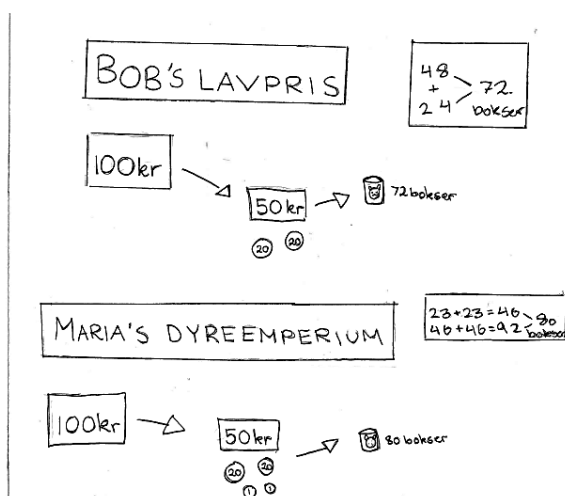 BOB'S LAVPRIS
48
+
24
72.
bokser
100kr
50kr
72 bokser
20 20
MARIA'S DYREEMPERIUM
23+23=46
46+46=92
80
bokser
100kr
50kr
80 bokser
20 20
1 1